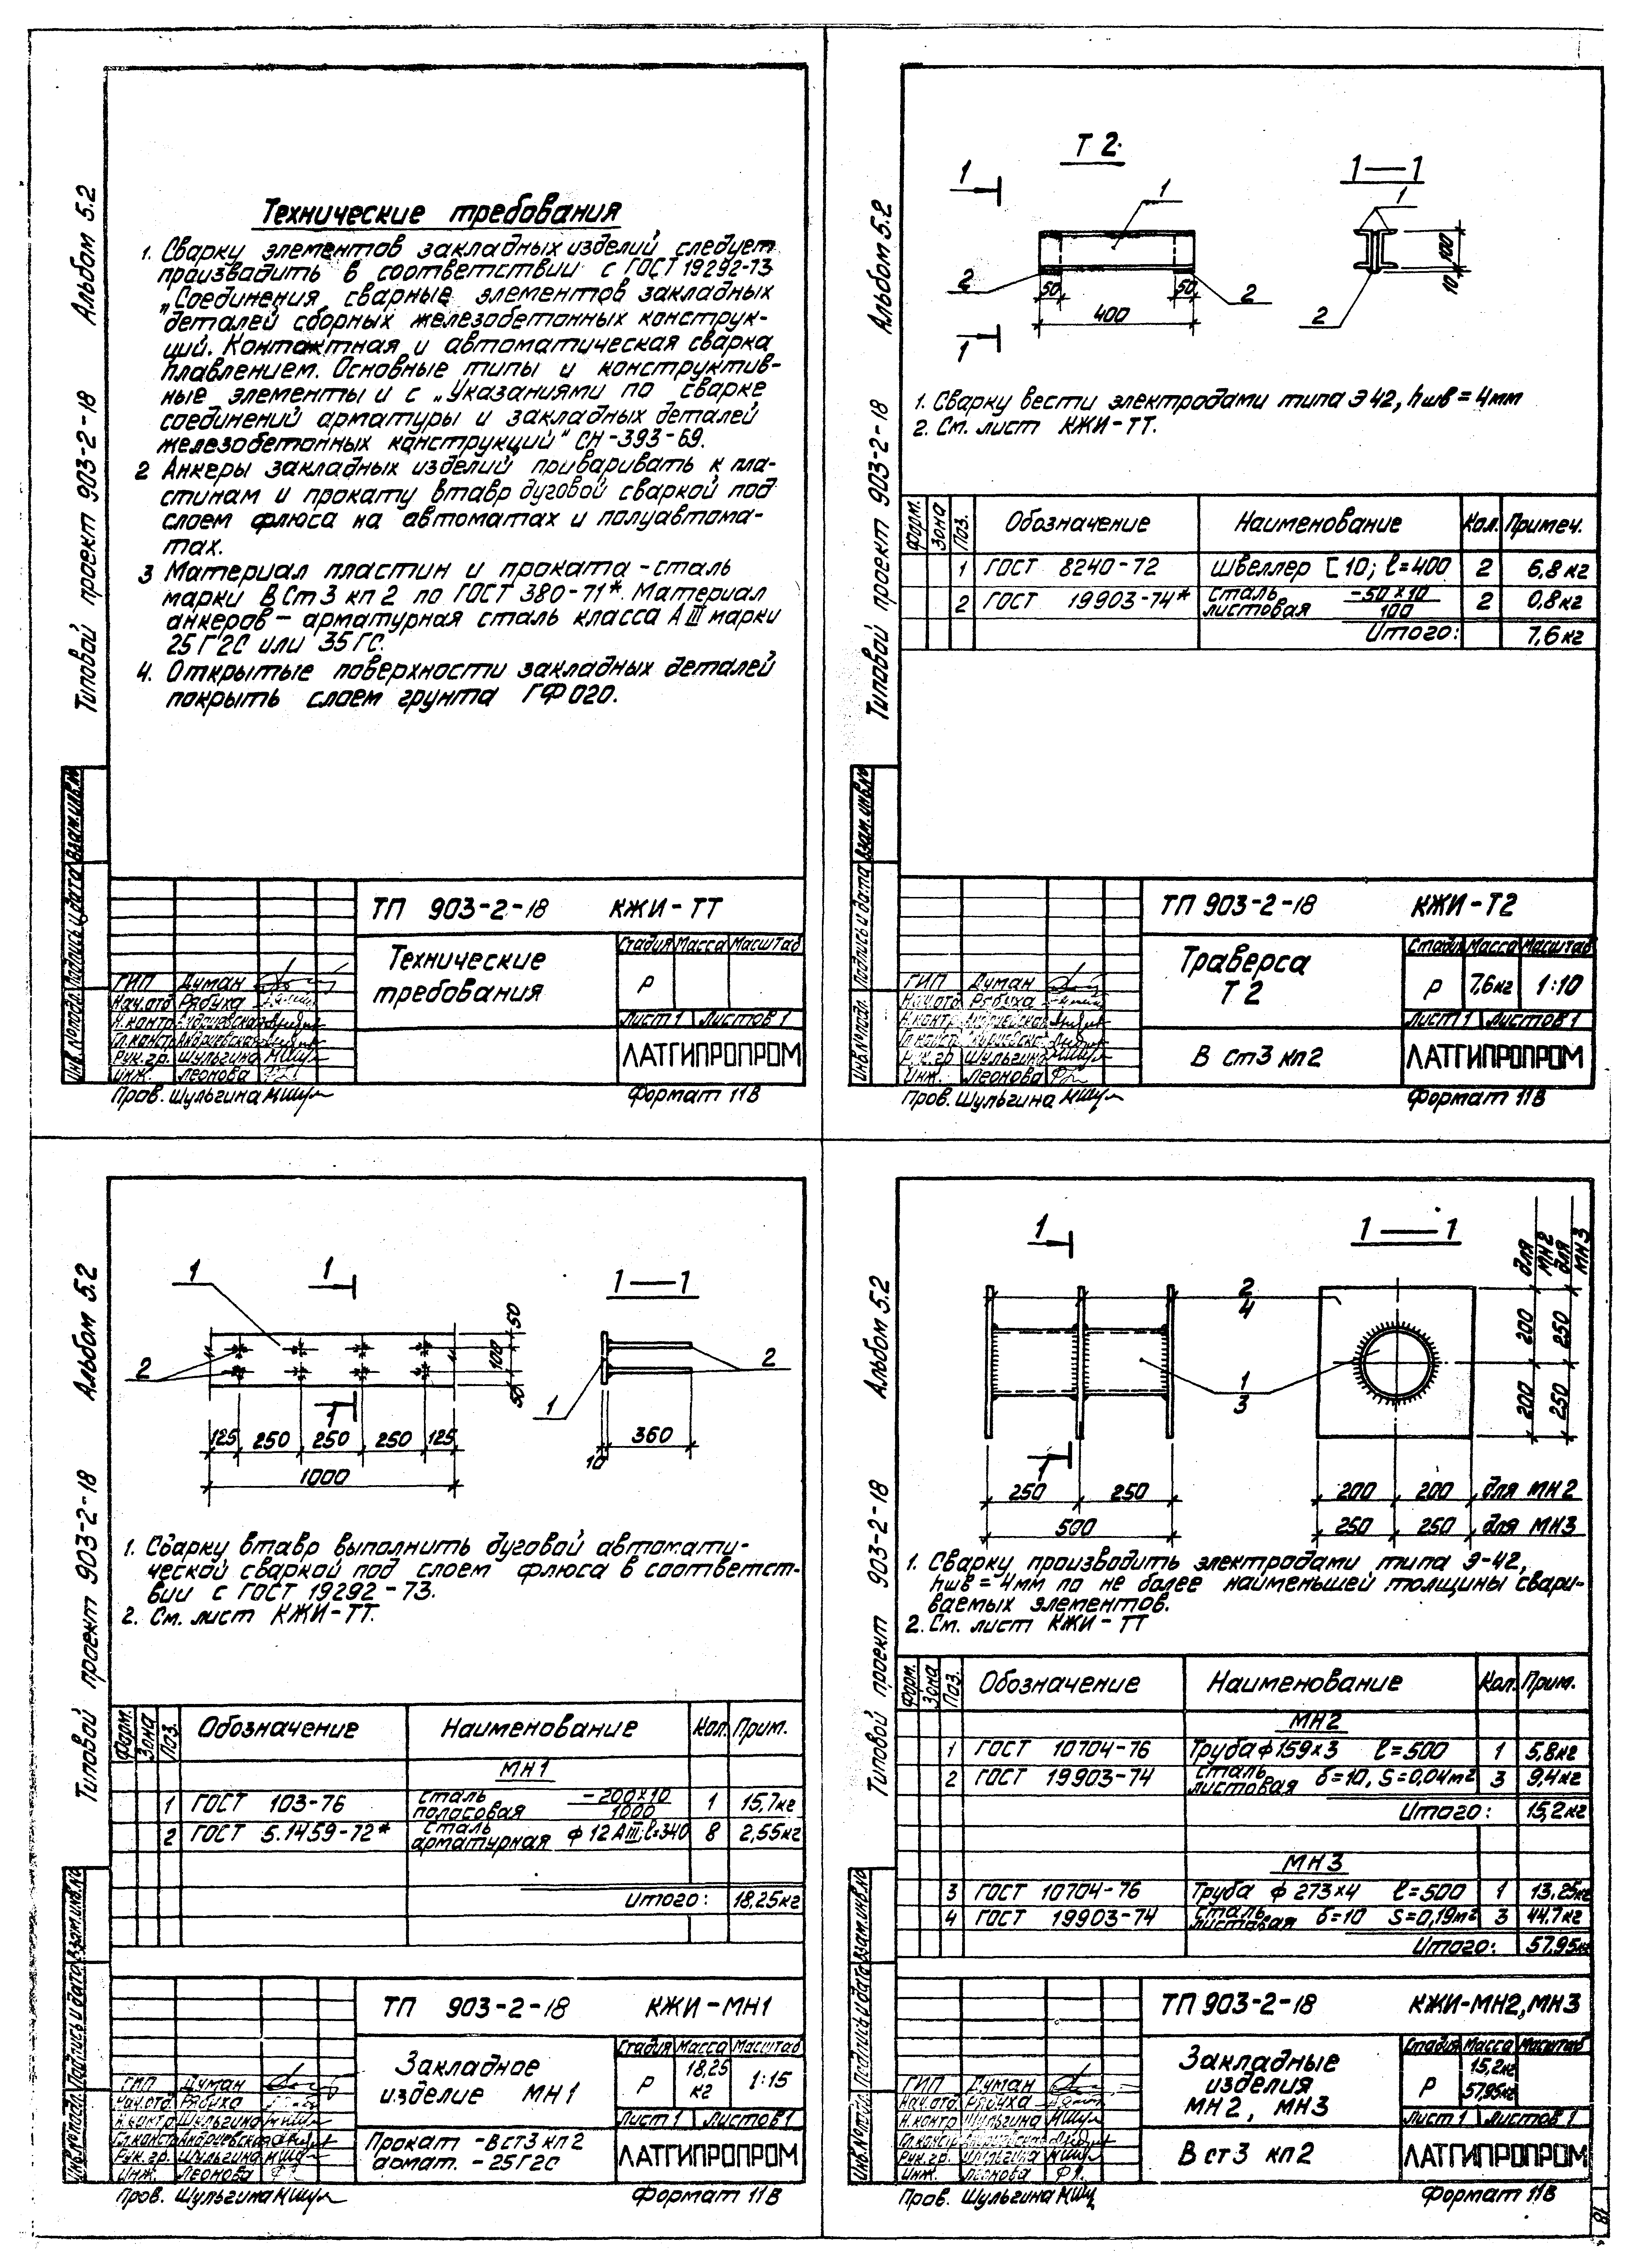 Типовой проект 903-2-18 Альбом 5.2
Технические требования
1. Сварку элементов закладных изделий следует
производить в соответствии с ГОСТ 19292-73
„Соединения сварные элементов закладных
деталей сборных железобетонных конструк-
ций. Контактная и автоматическая сварка
плавлением. Основные типы и конструктив-
ные элементы и с „Указаниями по сварке
соединений арматуры и закладных деталей
железобетонных конструкций" СН-393-69.
2 Анкеры закладных изделий приваривать к пла-
стинам и прокату втавр дуговой сваркой под
слоем флюса на автоматах и полуавтома-
тах.
3 Материал пластин и проката - сталь
марки ВСт3 кп 2 по ГОСТ 380-71*. Материал
анкеров - арматурная сталь класса А III марки
25Г2С или 35ГС.
4. Открытые поверхности закладных деталей
покрыть слоем грунта ГФ 020.
Инв.№подл. Подпись и дата Взам.инв.№
ТП 903-2-18 КЖИ-ТТ
Технические
требования
Стадия Масса Масштаб
Р
Лист 1 Листов 1
ЛАТГИПРОПРОМ
ГИП Думан
Нач.отд Рябуха
Н.контр. Андриевская
Гл.констр Андриевская
Рук.гр. Шульгина
Инж. Леонова
Пров. Шульгина
Формат 11В
Типовой проект 903-2-18 Альбом 5.2
Т 2
1
1
1—1
1
2
2
50
50
400
1
2
100
10
1. Сварку вести электродами типа Э 42, hшв = 4мм
2. См. лист КЖИ-ТТ.
Форм. Зона Поз. Обозначение Наименование Кол. Примеч.
1 ГОСТ 8240-72 Швеллер [ 10; ℓ=400 2 6,8кг
2 ГОСТ 19903-74* сталь листовая -50×10 / 100 2 0,8кг
Итого: 7,6 кг
Инв.№подл. Подпись и дата Взам.инв.№
ТП 903-2-18 КЖИ-Т2
Траверса
Т 2
Стадия Масса Масштаб
Р 7,6кг 1:10
Лист 1 Листов 1
В ст3 кп2
ЛАТГИПРОПРОМ
ГИП Думан
Нач.отд Рябуха
Н.контр Андриевская
Гл.констр Андриевская
Рук.гр Шульгина
Инж. Леонова
Пров. Шульгина
Формат 11В
Типовой проект 903-2-18 Альбом 5.2
1
1
2
1
50
100
50
125 250 250 250 125
1000
1—1
2
1
360
10
1. Сварку втавр выполнить дуговой автомати-
ческой сваркой под слоем флюса в соответст-
вии с ГОСТ 19292-73.
2. См. лист КЖИ-ТТ.
Форм. Зона Поз. Обозначение Наименование Кол. Прим.
МН1
1 ГОСТ 103-76 сталь полосовая -200×10 / 1000 1 15,7кг
2 ГОСТ 5.1459-72* сталь арматурная ф 12 АIII; ℓ=340 8 2,55кг
Итого: 18,25кг
Инв.№подл. Подпись и дата Взам.инв.№
ТП 903-2-18 КЖИ-МН1
Закладное
изделие МН1
Стадия Масса Масштаб
Р 18,25 кг 1:15
Лист 1 Листов 1
Прокат -Вст3 кп2
армат. -25Г2С
ЛАТГИПРОПРОМ
ГИП Думан
Нач.отд Рябуха
Н.контр Шульгина
Гл.констр Андриевская
Рук.гр. Шульгина
Инж. Леонова
Пров. Шульгина
Формат 11В
Типовой проект 903-2-18 Альбом 5.2
1
1
2
4
1
3
250 250
500
1—1
для МН2
для МН3
200 250
200 250
200 200 для МН2
250 250 для МН3
1. Сварку производить электродами типа Э-42,
hшв = 4мм по не более наименьшей толщины свари-
ваемых элементов.
2. См. лист КЖИ-ТТ
Форм. Зона Поз. Обозначение Наименование Кол. Прим.
МН2
1 ГОСТ 10704-76 Труба ф159×3 ℓ=500 1 5,8кг
2 ГОСТ 19903-74 сталь листовая б=10, S=0,04м² 3 9,4кг
Итого: 15,2кг
МН3
3 ГОСТ 10704-76 Труба ф 273×4 ℓ=500 1 13,25кг
4 ГОСТ 19903-74 сталь листовая б=10 S=0,19м² 3 44,7кг
Итого: 57,95кг
Инв.№подл. Подпись и дата Взам.инв.№
ТП 903-2-18 КЖИ-МН2, МН3
Закладные
изделия
МН2, МН3
Стадия Масса Масштаб
Р 15,2кг 57,95кг
Лист 1 Листов 1
В ст3 кп2
ЛАТГИПРОПРОМ
ГИП Думан
Нач.отд Рябуха
Н.контр Шульгина
Гл.констр Андриевская
Рук.гр. Шульгина
Инж. Леонова
Пров. Шульгина
Формат 11В
18